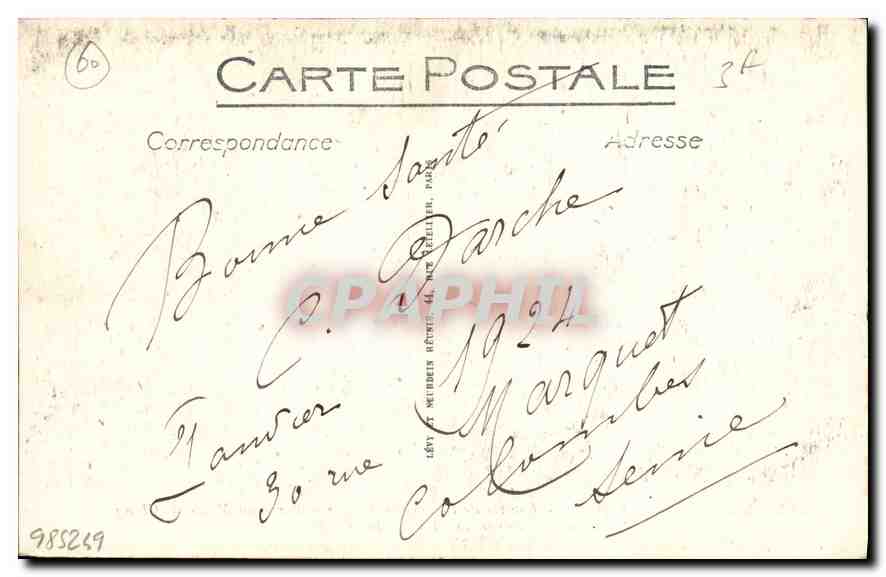 60
CARTE POSTALE
3f
Correspondance
Adresse
Bonne Santé
C. Darche
Janvier 1924
30 rue Marquet
Colombes
Seine
LÉVY ET NEURDEIN RÉUNIS, 44, RUE LETELLIER, PARIS
CPAPHIL
985259